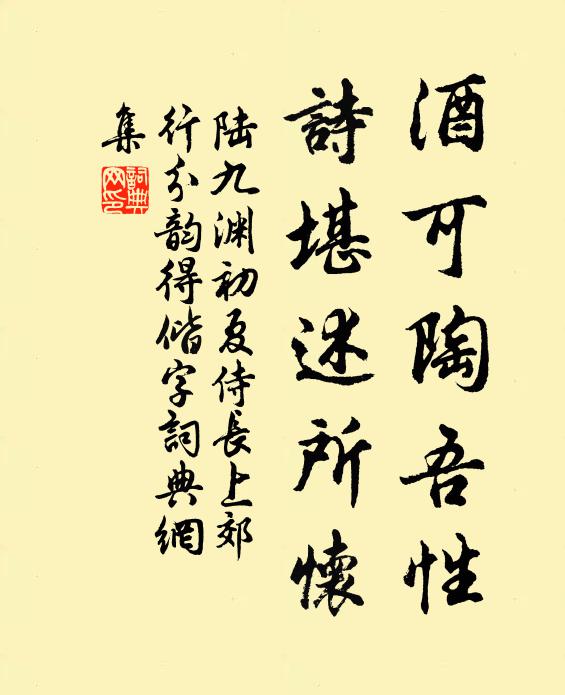 酒可陶吾性
詩堪述所懷
陸九渊初夏侍長上郊
行分韵得偕字詞典網
集
詞典
网印